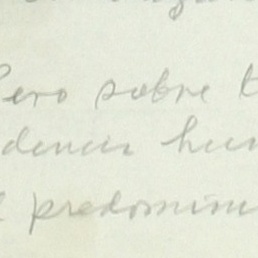 Pero sobre t
dencia hum
predomini